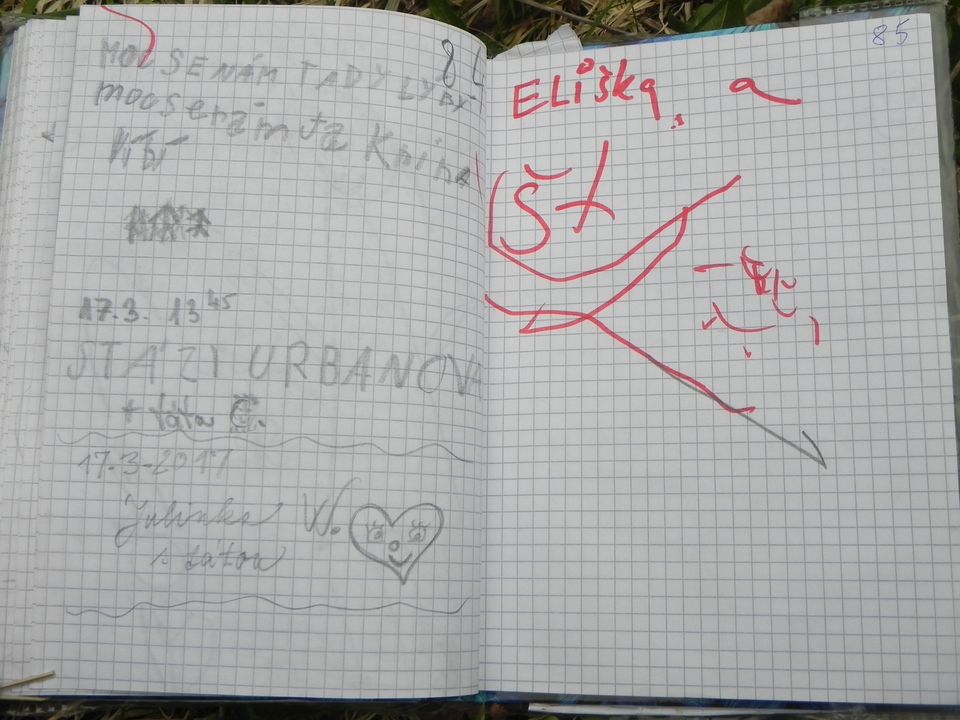 84
MOC SE NÁM TADY LÝBÍ
moc se nám ta Kniha
líbí
17.3. 13 45
STÁZI URBANOV
+ táta Č.
17.3-2017
Julinka W.
s tátou
85
ELIŠKA a
Št